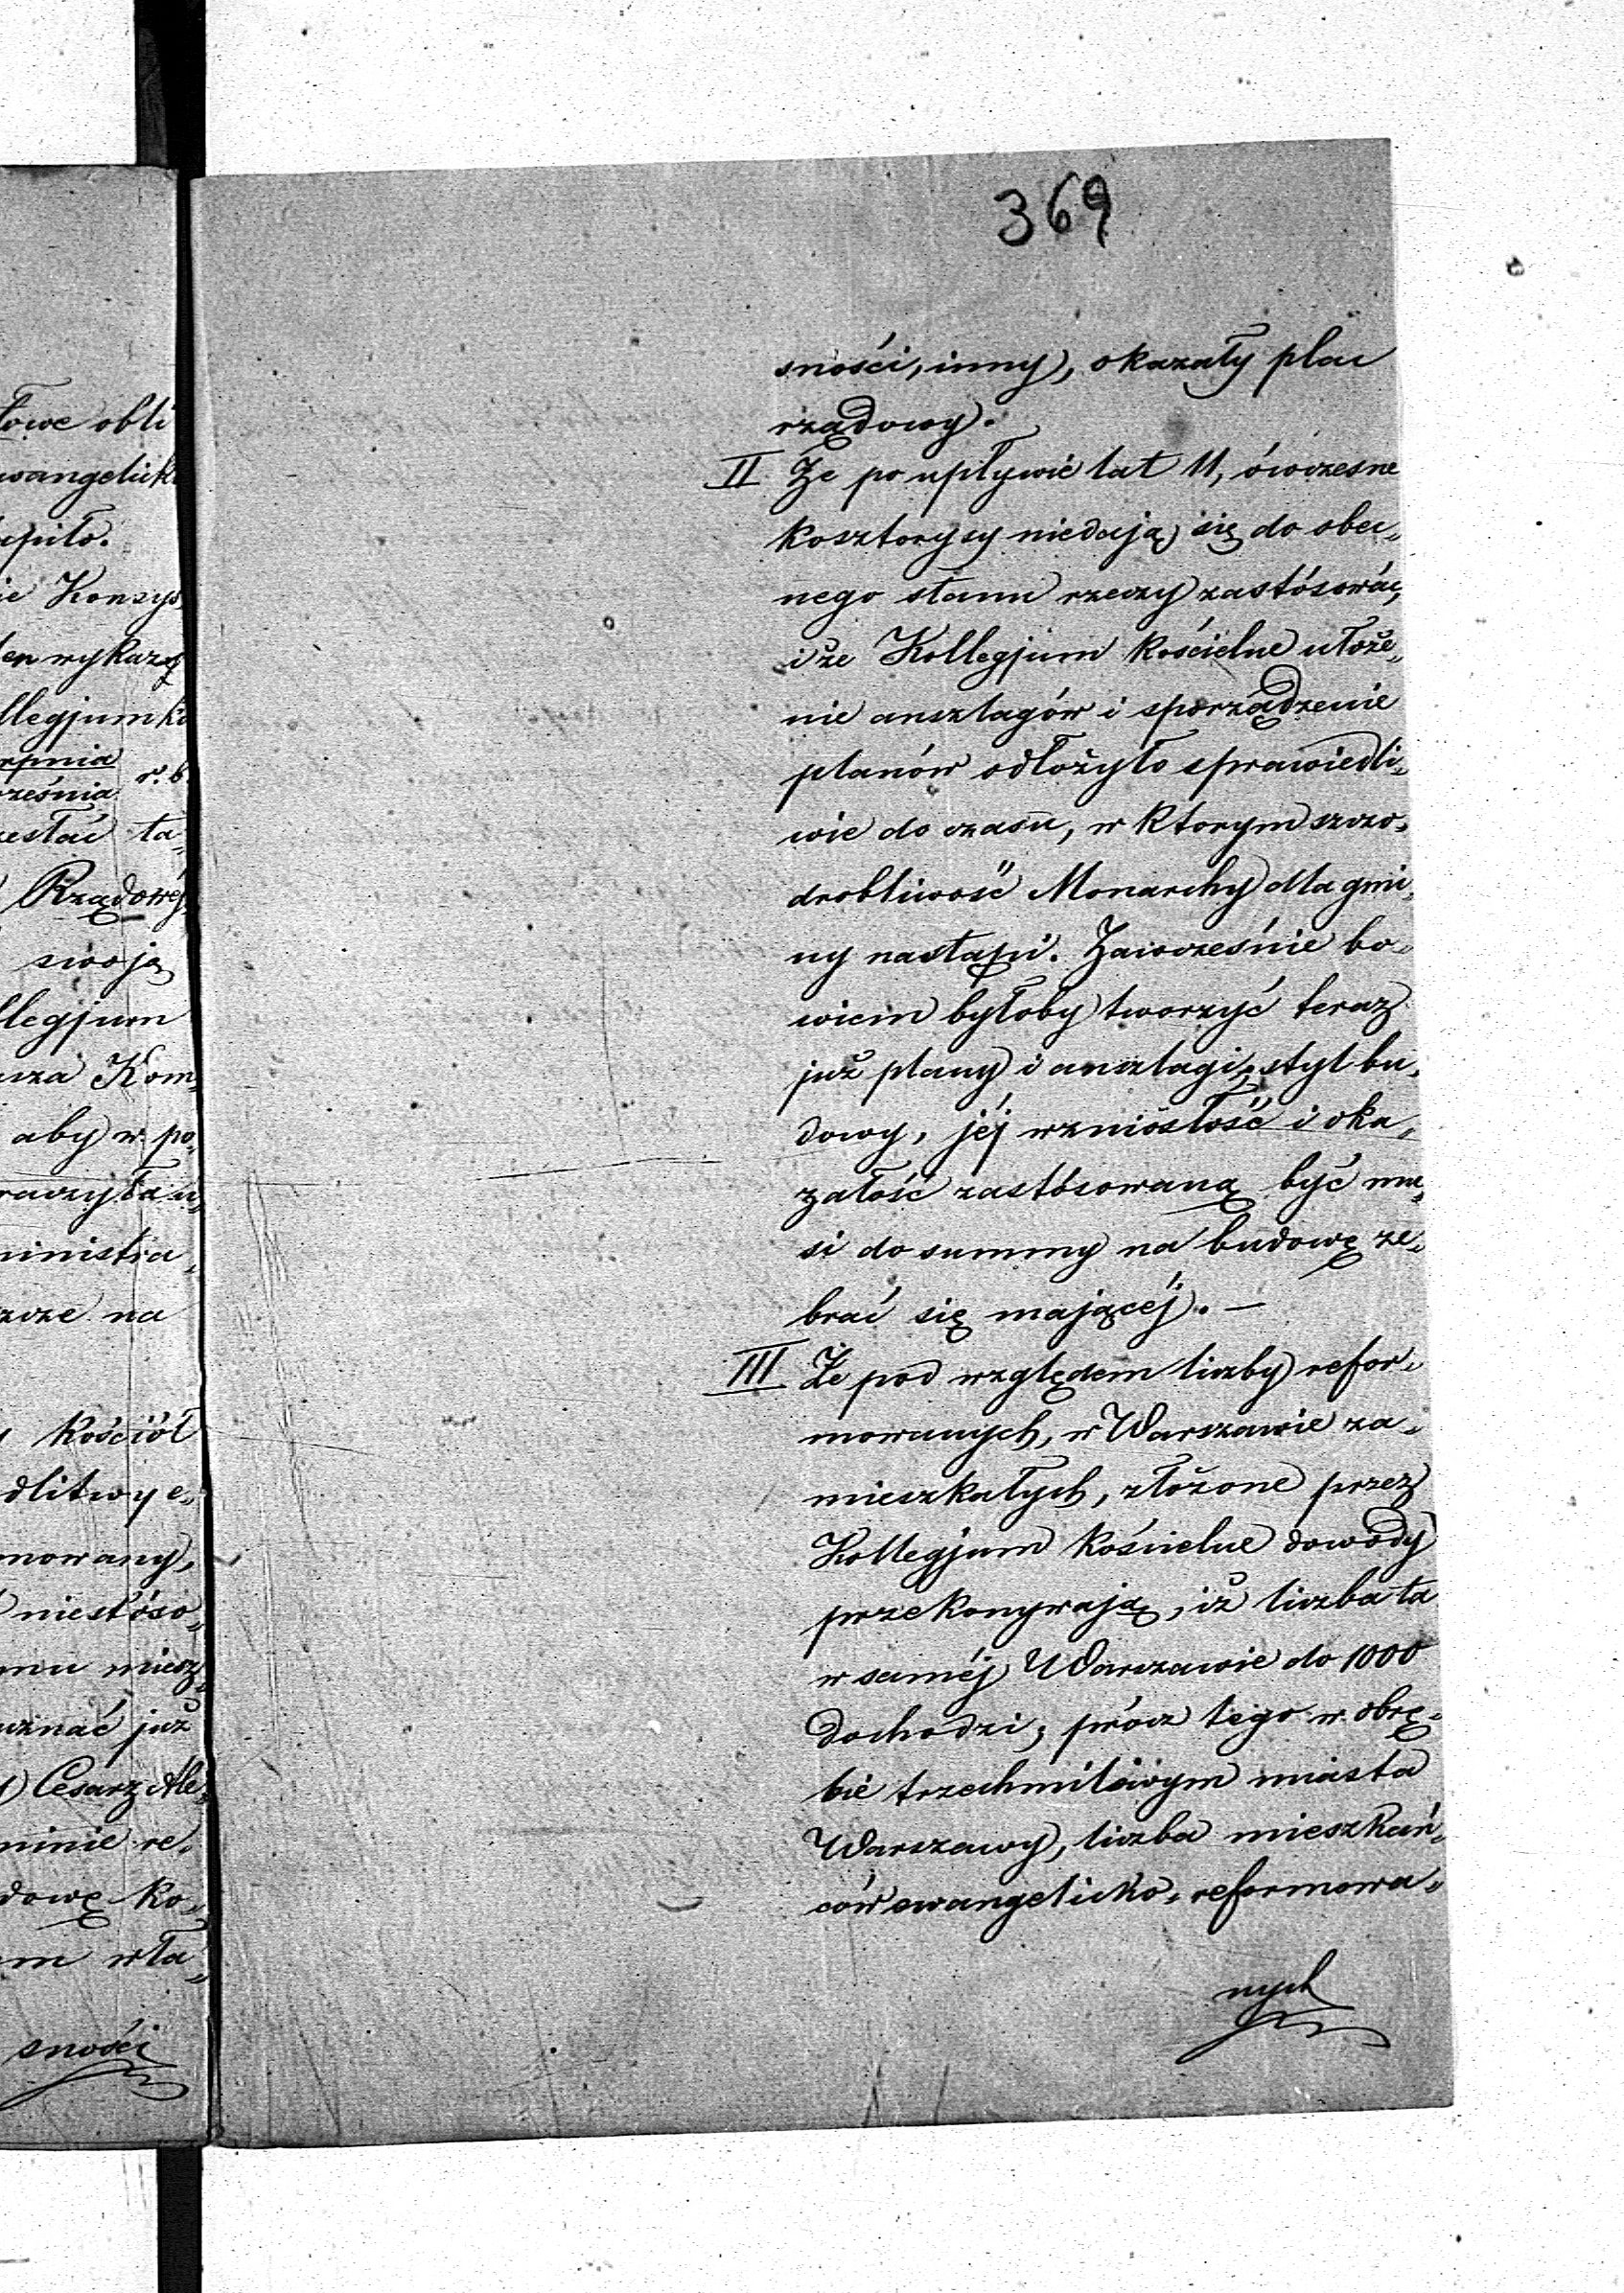 369
sności, inny, okazały plac
rządowy.
II Że po upływie lat 11, ówczesne
kosztorysy niedają się do obec„
nego stanu rzeczy zastósować,
i że Kollegjum kościelne ułoże„
nie anszlagów i sporządzenie
planów odłożyło sprawiedli„
wie do czasu, w którym szczo„
drobliwość Monarchy dla gmi„
ny nastąpi. Zawcześnie bo„
wiem byłoby tworzyć teraz
już plany i anszlagi, styl bu„
dowy, jéj wzniosłość i oka„
załość zastósowaną być mu„
si do summy na budowę ze„
brać się mającéj. —
III Że pod względem liczby refor„
mowanych, w Warszawie za„
mieszkałych, złożone przez
Kollegjum kościelne dowody
przekonywają, iż liczba ta
w saméj Warszawie do 1000
dochodzi; prócz tego w obrę„
bie trzechmilowym miasta
Warszawy, liczba mieszkań„
ców ewangelicko-reformowa„
nych
łowe obli
wangelick
piło.
ie Konsys
en wykazy
llegjum ko
rpnia
ześnia r. b.
esłać ta„
Rządowéj
swoją
llegjum
sza Kom„
aby w po„
raczyła u„
ministra„
zcze na
kościół
dlitwy e„
mowany,
niestóso„
mu miesz„
uznać już
Cesarz Ale„
minie re„
dowę ko„
m wła„
sności